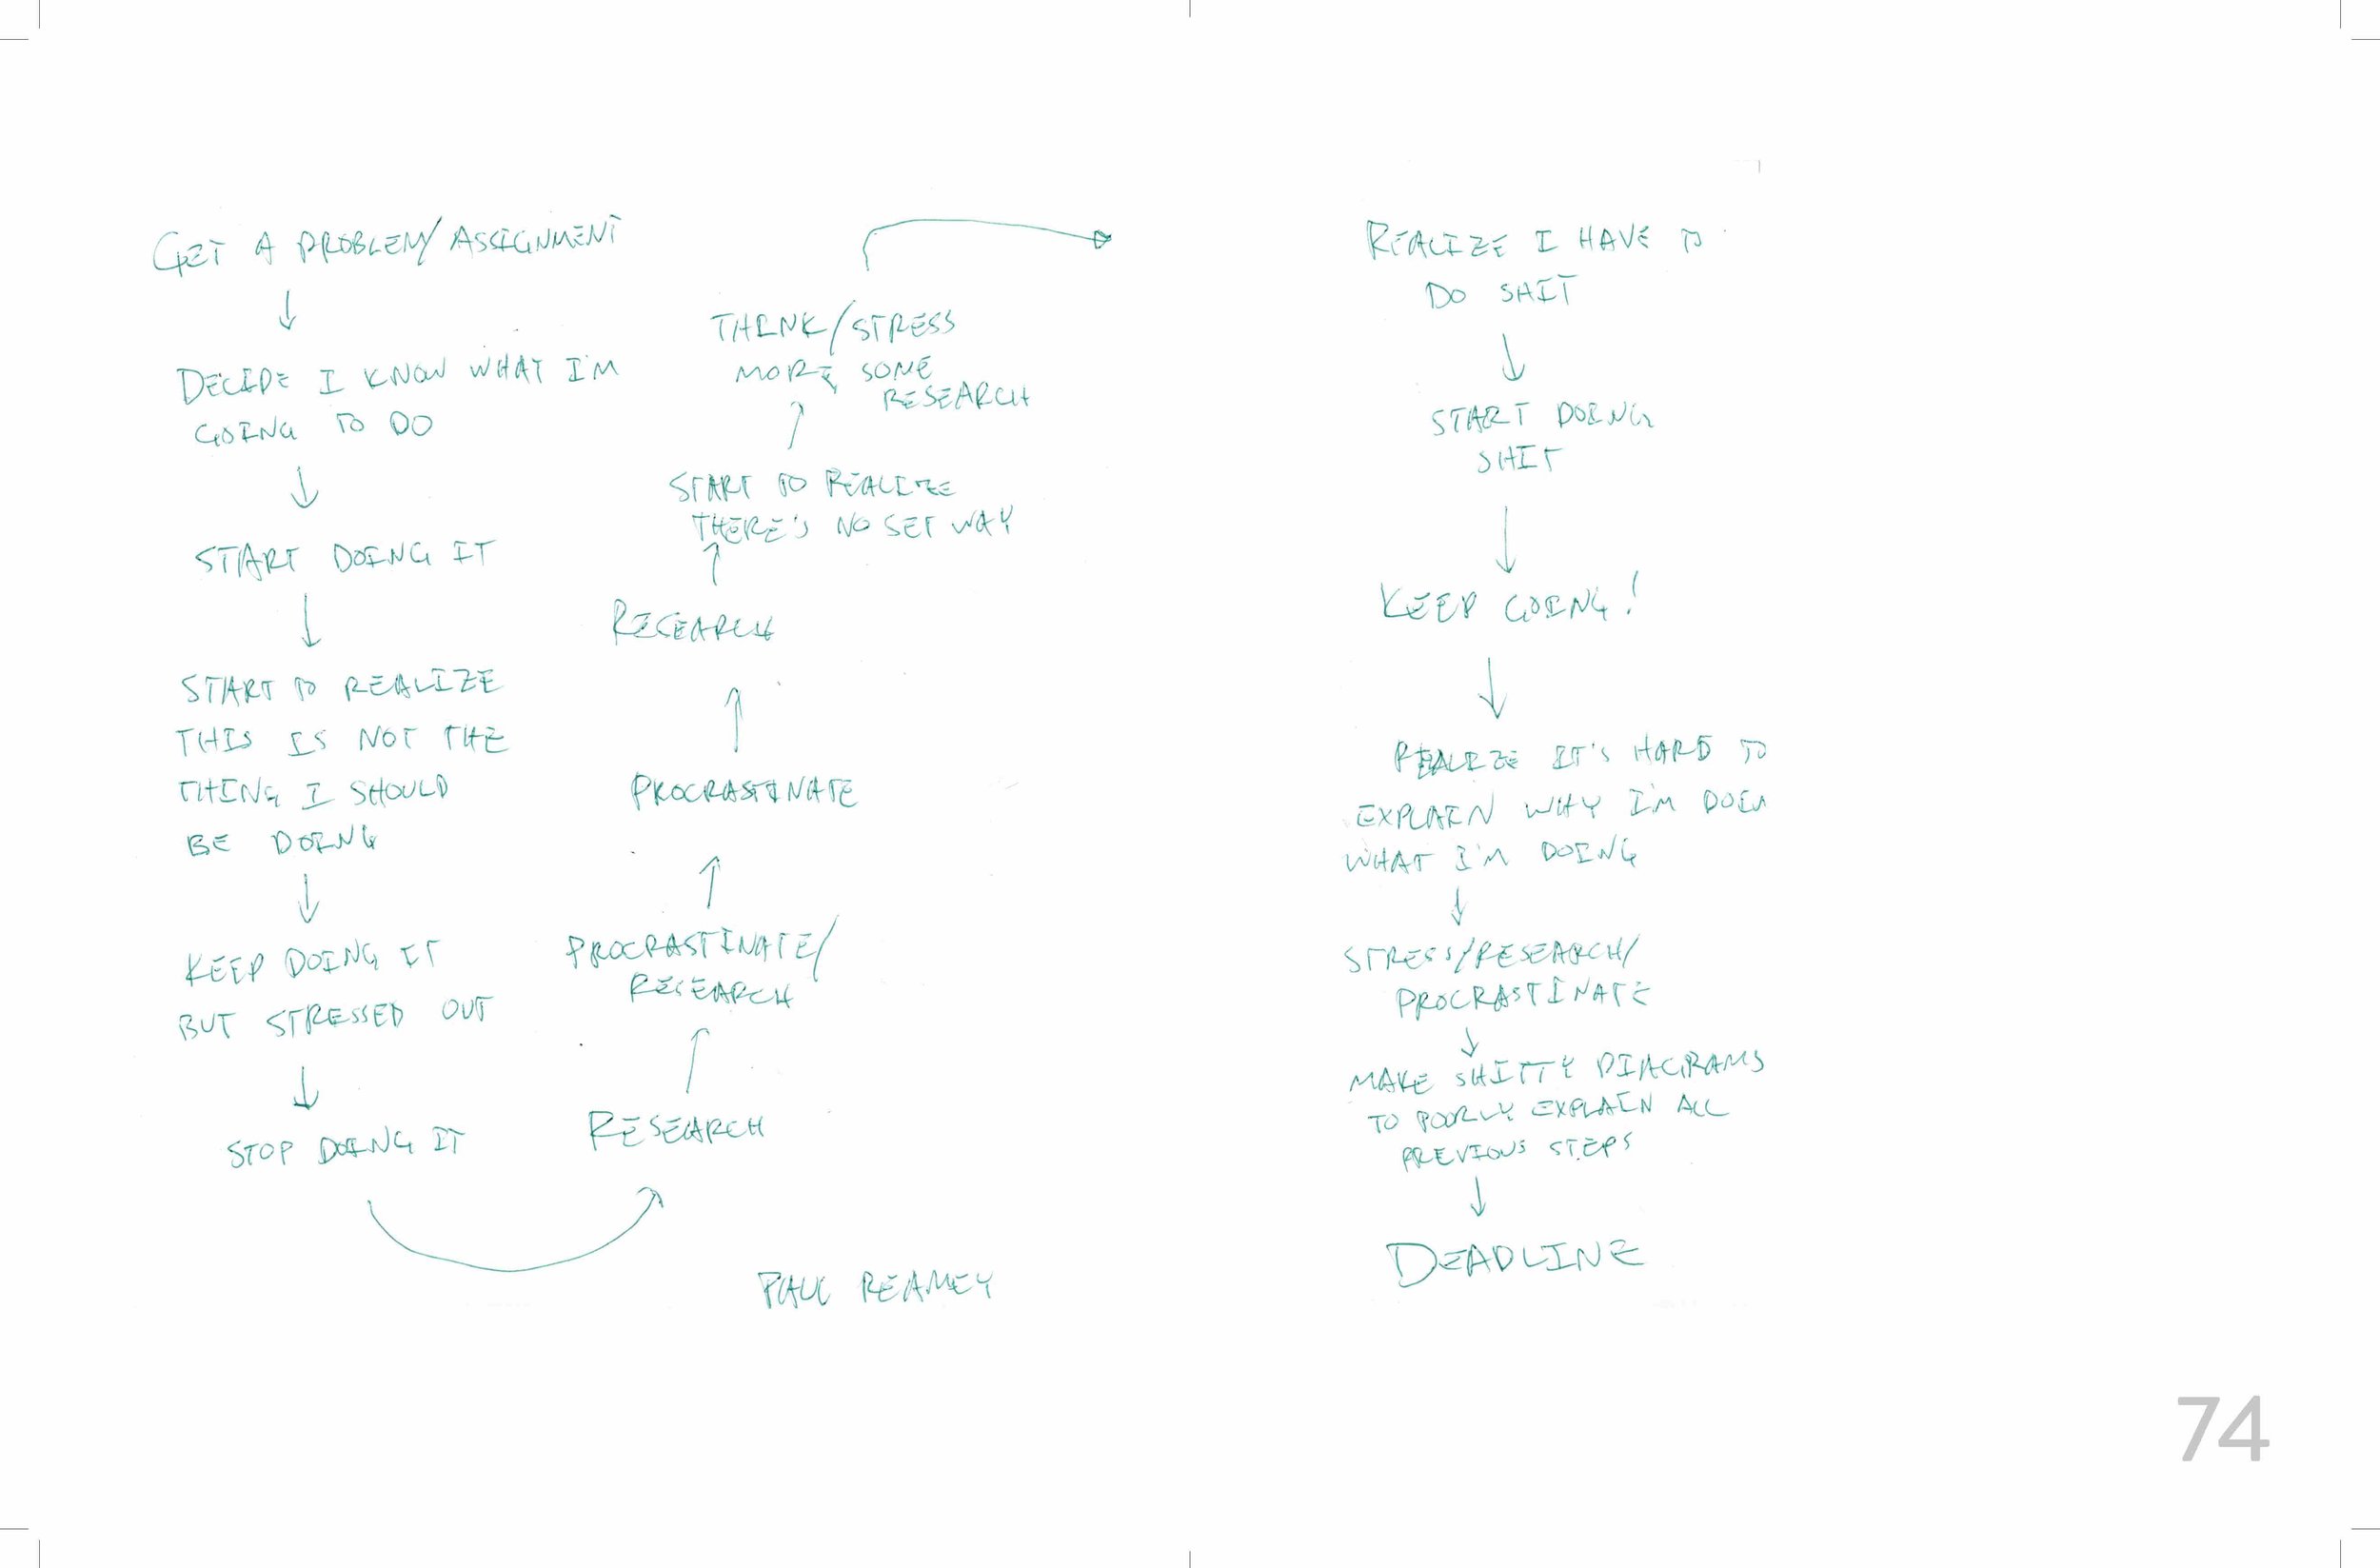 GET A PROBLEM/ASSIGNMENT
DECIDE I KNOW WHAT I'M
GOING TO DO
START DOING IT
START TO REALIZE
THIS IS NOT THE
THING I SHOULD
BE DOING
KEEP DOING IT
BUT STRESSED OUT
STOP DOING IT
RESEARCH
PROCRASTINATE/
RESEARCH
PROCRASTINATE
RESEARCH
START TO REALIZE
THERE'S NO SET WAY
THINK/STRESS
MORE, SOME
RESEARCH
PAUL REAMEY
REALIZE I HAVE TO
DO SHIT
START DOING
SHIT
KEEP GOING!
REALIZE IT'S HARD TO
EXPLAIN WHY I'M DOIN
WHAT I'M DOING
STRESS/RESEARCH/
PROCRASTINATE
MAKE SHITTY DIAGRAMS
TO POORLY EXPLAIN ALL
PREVIOUS STEPS
DEADLINE
74